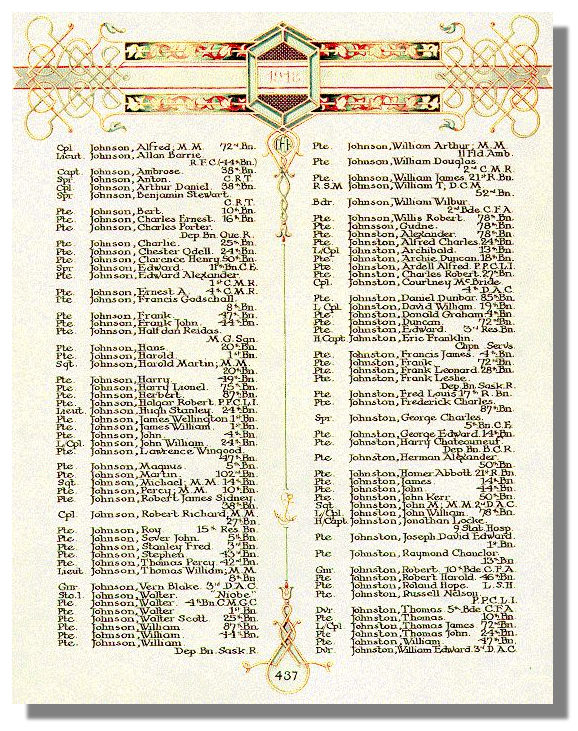 1918
Cpl Johnson, Alfred, M.M. 72nd Bn.
Lieut. Johnson, Allan Barrie
R.F.C. (44th Bn.)
Capt. Johnson, Ambrose 38th Bn.
Spr Johnson, Anton C.R.T.
Cpl Johnson, Arthur Daniel 38th Bn.
Spr Johnson, Benjamin Stewart
C.R.T.
Pte Johnson, Bert 10th Bn.
Pte Johnson, Charles Ernest 16th Bn.
Pte Johnson, Charles Porter
Dep. Bn Que. R.
Pte. Johnson, Charlie 25th Bn.
Pte. Johnson, Chester Odell 24th Bn.
Pte. Johnson, Clarence Henry 50th Bn.
Spr Johnson, Edward 11th Bn. C.E.
Pte Johnson, Edward Alexander
1st C.M.R.
Pte Johnson, Ernest A. 4th C.M.R.
Pte Johnson, Francis Godschall
8th Bn.
Pte Johnson, Frank 47th Bn.
Pte. Johnson, Frank John 44th Bn.
Pte. Johnson, Halfdan Reidas
M.G. Sqn
Pte. Johnson, Hans 20th Bn.
Pte. Johnson, Harold 1st Bn.
Sgt. Johnson, Harold Martin, M.M.
20th Bn.
Pte. Johnson, Harry 49th Bn.
Pte. Johnson, Harry Lionel 75th Bn.
Pte. Johnson, Herbert 87th Bn.
Pte. Johnson, Holgar Robert P.P.C.L.I.
Lieut. Johnson, Hugh Stanley 24th Bn.
Pte. Johnson, James Wellington 1st Bn.
Pte. Johnson, James William 1st Bn.
Pte. Johnson, John 4th Bn.
L/Cpl Johnson, John William 24th Bn.
Pte. Johnson, Lawrence Wingood
47th Bn.
Pte Johnson, Magnus 5th Bn.
Pte Johnson, Martin 102nd Bn.
Sgt Johnson, Michael, M.M. 14th Bn.
Pte Johnson, Percy, M.M. 10th Bn.
Pte Johnson, Robert James Sidney
38th Bn.
Cpl. Johnson, Robert Richard, M.M.
27th Bn.
Pte. Johnson, Roy 15th Res. Bn.
Pte. Johnson, Sever John 5th Bn.
Pte. Johnson, Stanley Fred 3rd Bn.
Pte. Johnson, Stephen 43rd Bn.
Pte. Johnson, Thomas Percy 42nd Bn.
Lieut Johnson, Thomas William, M.M.
8th Bn
Gnr Johnson, Vern Blake 3rd D.A.C.
Sto.1. Johnson, Walter "Niobe"
Pte Johnson, Walter 4th Bn. C.M.G.C.
Pte Johnson, Walter 1st Bn.
Pte Johnson, Walter Scott 25th Bn.
Pte. Johnson, William 87th Bn.
Pte. Johnson, William 44th Bn.
Pte. Johnson, William
Dep Bn. Sask. R.
Pte. Johnson, William Arthur, M.M.
11 Fld. Amb.
Pte Johnson, William Douglas
2nd C.M.R.
Pte. Johnson, William James 21st R. Bn.
R.S.M Johnson, William T., D.C.M
52nd Bn.
Bdr. Johnson, William Wilbur
2nd Bde C.F.A.
Pte. Johnson, Willis Robert 78th Bn.
Pte. Johnsson, Gudne 78th Bn.
Pte. Johnston, Alexander 78th Bn.
Pte. Johnston, Alfred Charles 24th Bn.
L/Cpl Johnston, Archibald 13th Bn.
Pte. Johnston, Archie Duncan 18th Bn.
Pte. Johnston, Ardell Alfred P.P.C.L.I.
Pte Johnston, Charles Robert 27th Bn.
Cpl. Johnston, Courtney McBride
4th D.A.C.
Pte Johnston, Daniel Dunbar 85th Bn.
L/Cpl. Johnston, David William 19th Bn.
Pte Johnston, Donald Graham 4th Bn.
Pte Johnston, Duncan 72nd Bn.
Pte. Johnston, Edward 3rd Res. Bn.
H.Capt Johnston, Eric Franklin
Chpn Servs.
Pte. Johnston, Francis James 4th Bn.
Pte. Johnston, Frank 72nd Bn.
Pte. Johnston, Frank Leonard 28th Bn.
Pte. Johnston, Frank Leslie
Dep Bn. Sask R.
Pte. Johnston, Fred Louis 17th R. Bn.
Pte. Johnston, Frederick Charles
87th Bn.
Spr. Johnston, George Charles
5th Bn. C.E.
Pte. Johnston, George Edward 14th Bn.
Pte. Johnston, Harry Chateauneuf
Dep Bn. B.C.R.
Pte. Johnston, Herman Alexander
50th Bn.
Pte. Johnston, Homer Abbott 21st R. Bn.
Pte. Johnston, James 14th Bn.
Pte. Johnston, John 44th Bn.
Pte. Johnston, John Kerr 50th Bn.
Sgt Johnston, John M., M.M. 2nd D.A.C.
L/Cpl Johnston, John William 78th Bn.
H/Capt Johnston, Jonathan Locke
9 Stat. Hosp.
Pte Johnston, Joseph David Edward
1st Bn.
Pte Johnston, Raymond Chanclor
13th Bn.
Gnr. Johnston, Robert 10th Bde C.F.A.
Pte Johnston, Robert Harold 46th Bn.
Pte. Johnston, Roland Hope L.S.H.
Pte. Johnston, Russell Nelson
P.P.C.L.I.
Dvr Johnston, Thomas 5th Bde C.F.A.
Pte Johnston, Thomas 10th Bn
L/Cpl Johnston, Thomas James 72nd Bn.
Pte Johnston, Thomas John 24th Bn.
Pte. Johnston, William 47th Bn.
Dvr Johnston, William Edward 3rd D.A.C.
437